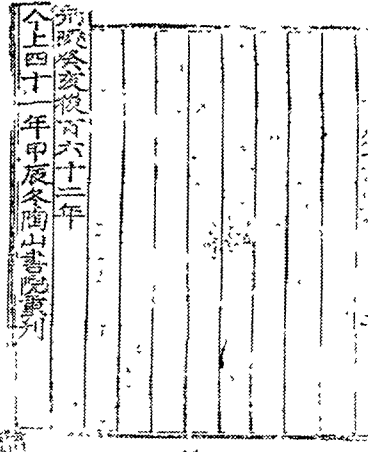 癸亥後百六十二年
今上四十一年甲辰冬陶山書院重刊